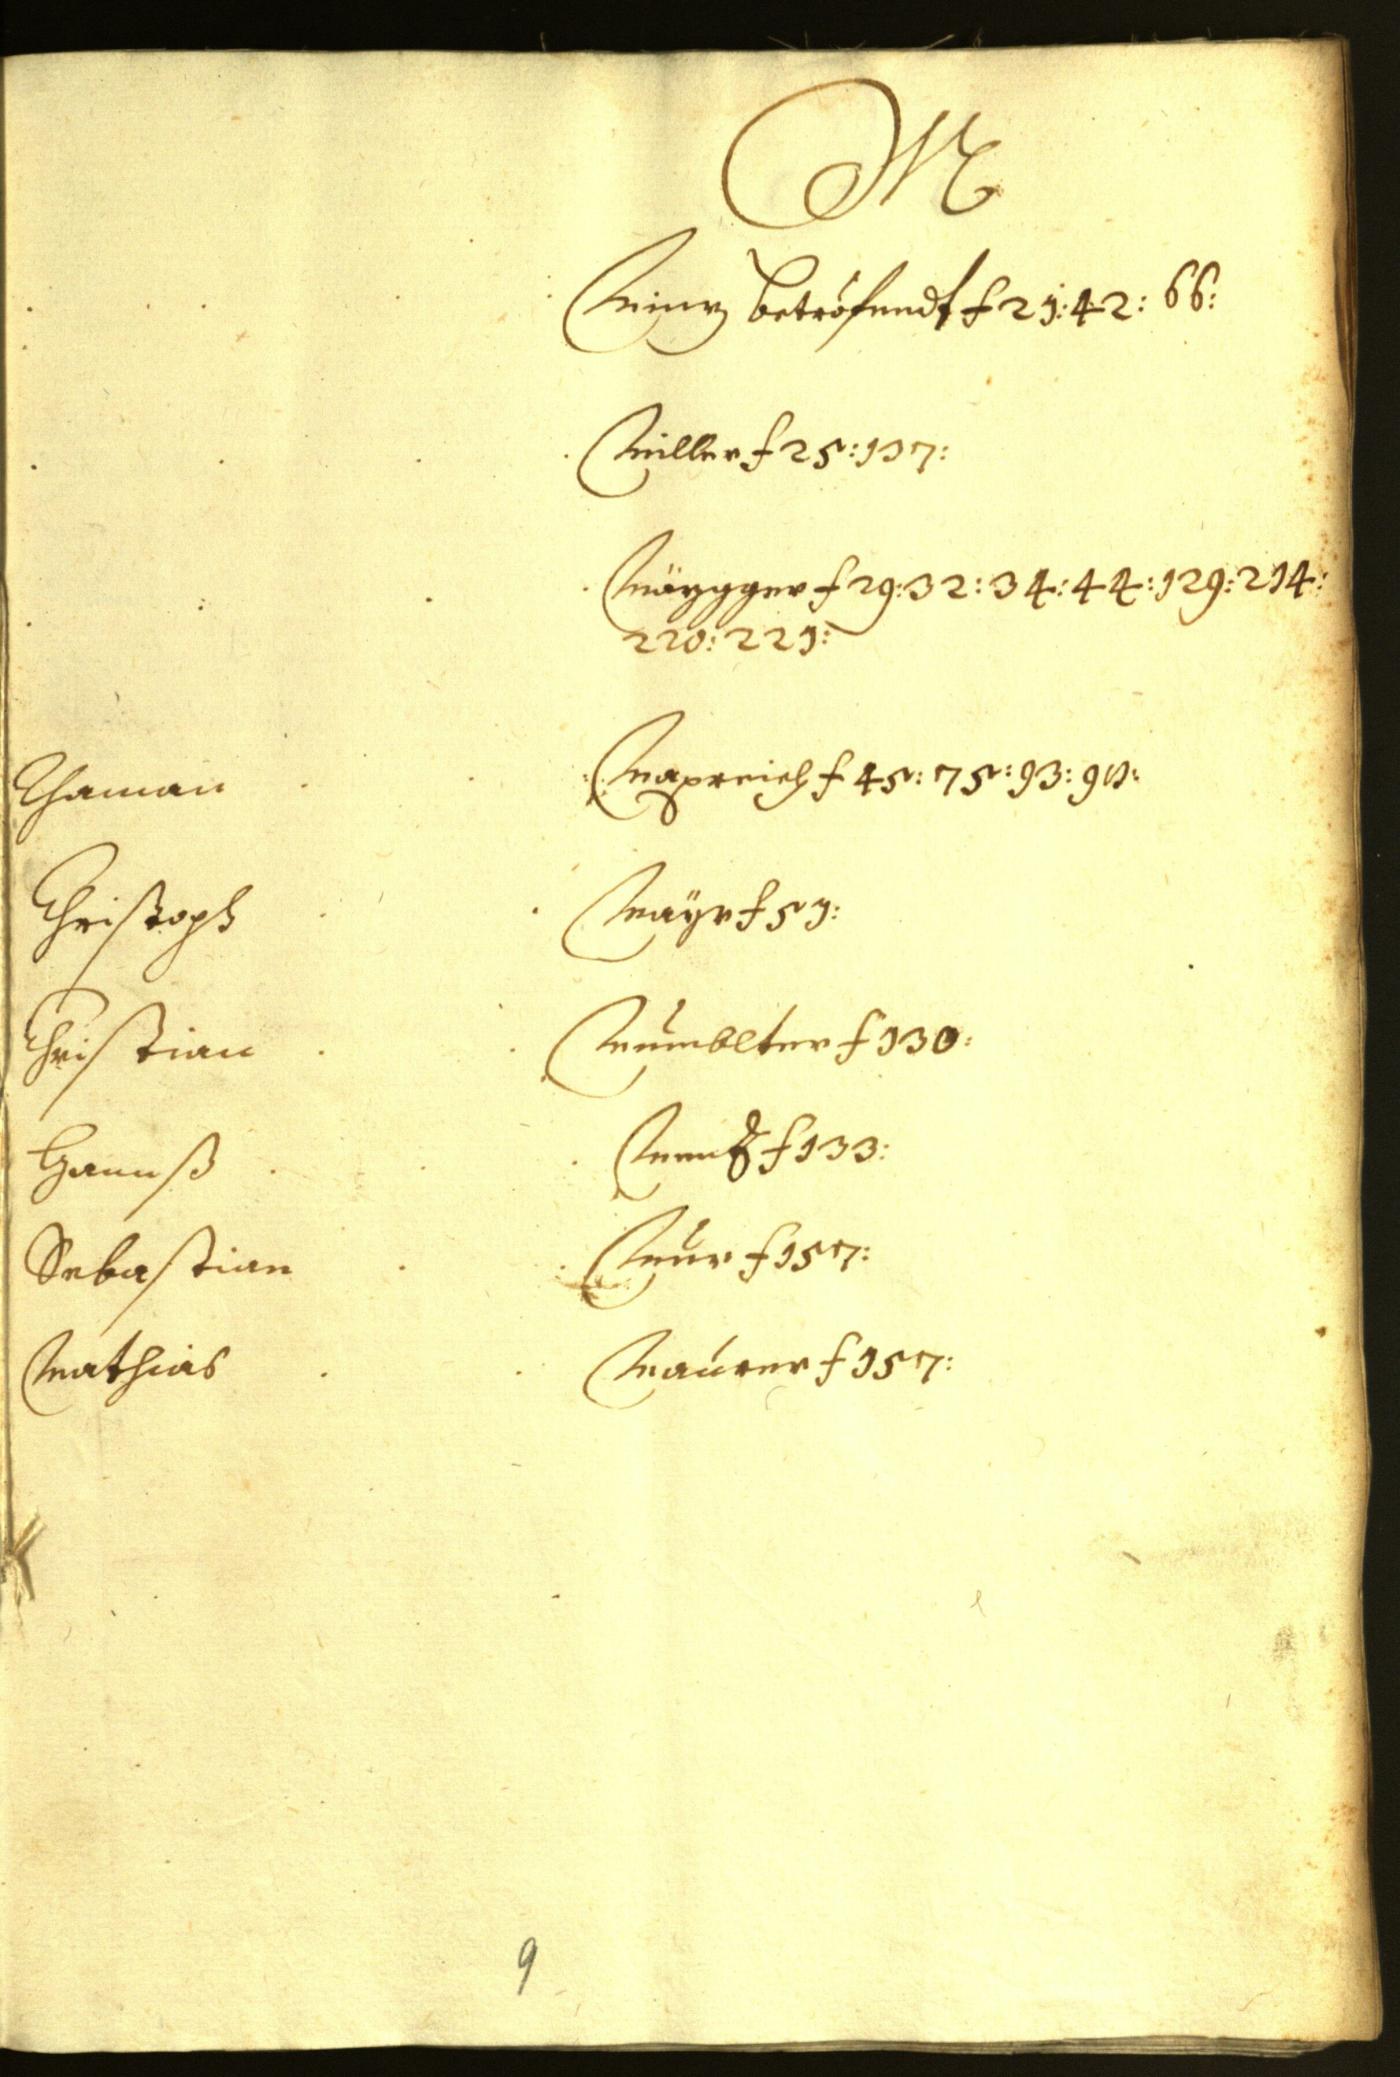 M
Minz betröfendt f 21: 42: 66:
Miller f 25: 107:
Mäygger f 29: 32: 34: 44: 129: 214:
220: 221:
Thaman Mapreich f 45: 75: 93: 90:
Christoph Mayr f 51:
Christian Mumblter f 130:
Hannß Menz f 133:
Sebastian Mur f 157:
Mathias Maurer f 157:
9